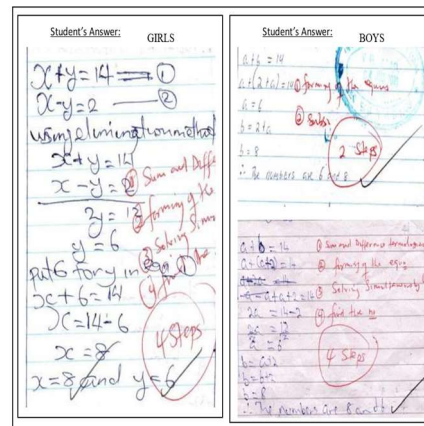 Student's Answer: GIRLS
x+y=14 ①
x-y=2 ②
using elimination method
x+y=14
x-y=2
① Sum and Diffe
2y=12
② forming of the
y=6
③ Solving simu
put 6 for y in eqn ①
④ find the
x+6=14
x=14-6
x=8
x=8 and y=6
4 Steps
Student's Answer: BOYS
a+b=14
a+(2+a)=14
① forming of the equns
a=6
② Subs
b=2+a
b=8
2 Steps
∴ The numbers are 6 and 8
a+b=14
① Sum and Difference
a+(a+2)=14
② forming of the equn
a+a+2=14
③ Solving Simultaneously
2a=14-2
④ find the no
2a=12
b=a+2
b=6+2
b=8
4 Steps
∴ The numbers are 8 and 6